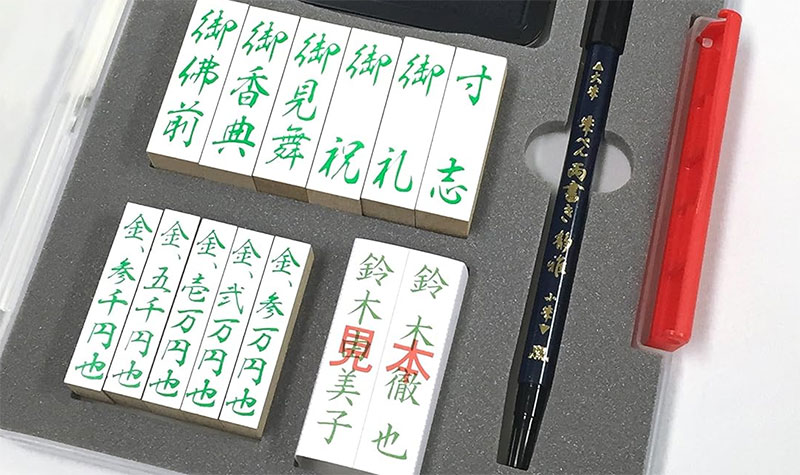 寸志
御礼
御祝
御見舞
御香典
御佛前
金、参万円也
金、弐万円也
金、壱万円也
金、五千円也
金、参千円也
鈴木徹也
鈴木由美子
見本
▲大筆 筆ぺん両書き 小筆▼